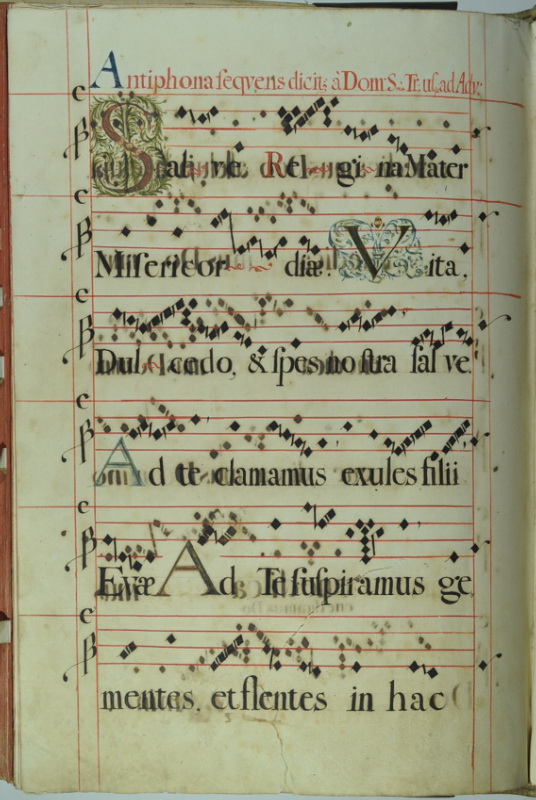 Antiphona seqvens dicit; à Dom: S. Tr. us, ad Adv:
Sal ve Re gi na Mater
Misericor diæ. Vita,
Dul cedo, & spes nostra sal ve.
Ad te clamamus exules filii
Evæ Ad Te suspiramus ge
mentes, et flentes in hac